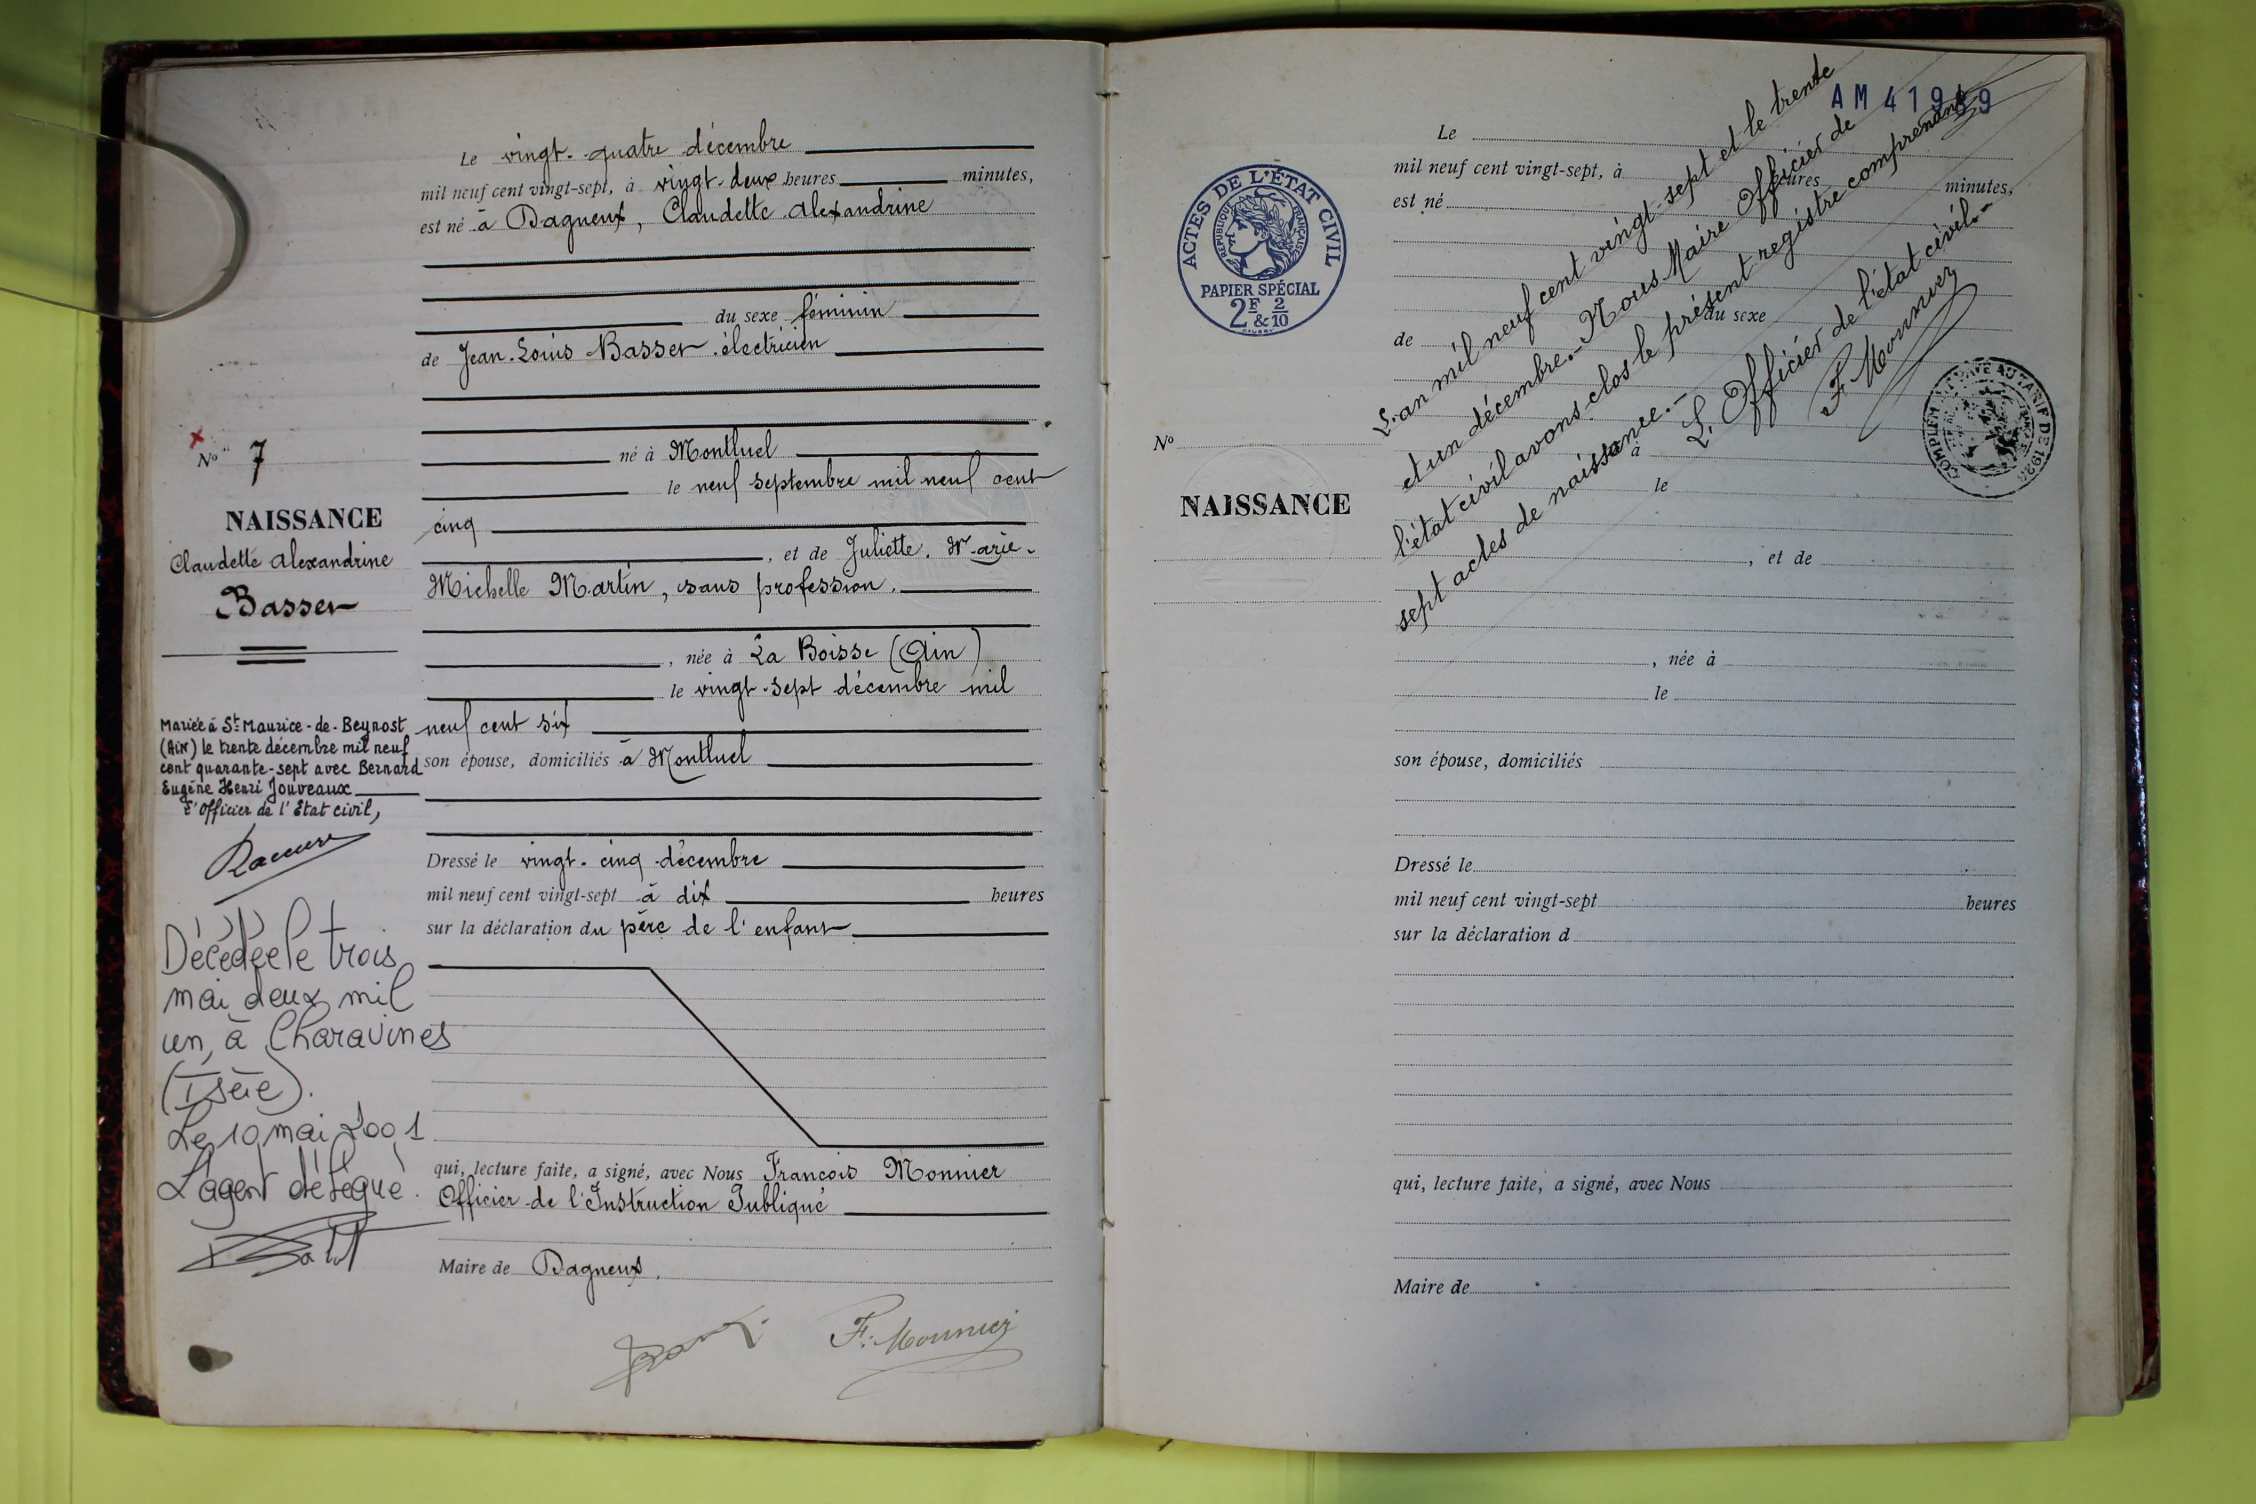 Le vingt-quatre décembre
mil neuf cent vingt-sept, à vingt-deux heures minutes,
est né à Dagneux, Claudette Alexandrine
du sexe féminin
de Jean-Louis Basser électricien
né à Montluel
le neuf septembre mil neuf cent
cinq
, et de Juliette. Marie-
Michelle Martin, sans profession.
, née à La Boisse (Ain)
le vingt-sept décembre mil
neuf cent six
son épouse, domiciliés à Montluel
Dressé le vingt-cinq décembre
mil neuf cent vingt-sept à dix heures
sur la déclaration du père de l'enfant
qui, lecture faite, a signé, avec Nous François Monnier
Officier de l'Instruction Publique
Maire de Dagneux.
F. Mounier
No 7
NAISSANCE
Claudette Alexandrine
Basser
Mariée à St Maurice-de-Beynost
(Ain) le trente décembre mil neuf
cent quarante-sept avec Bernard
Eugène Henri Jouveaux
L'Officier de l'Etat civil,
Décédée le trois
mai deux mil
un, à Charavines
(Isère).
Le 10 mai 2001
L'agent délégué.
AM 41989
ACTES DE L'ÉTAT CIVIL
RÉPUBLIQUE FRANÇAISE
PAPIER SPÉCIAL
2F & 2/10
No
NAISSANCE
Le
mil neuf cent vingt-sept, à heures minutes,
est né
du sexe
de
à
le
, et de
, née à
le
son épouse, domiciliés
Dressé le
mil neuf cent vingt-sept heures
sur la déclaration d
qui, lecture faite, a signé, avec Nous
Maire de
L'an mil neuf cent vingt-sept et le trente
et un décembre.- Nous Maire Officier de
l'état civil avons clos le présent registre comprenant
sept actes de naissance.-
L'Officier de l'état civil.-
F. Mounier